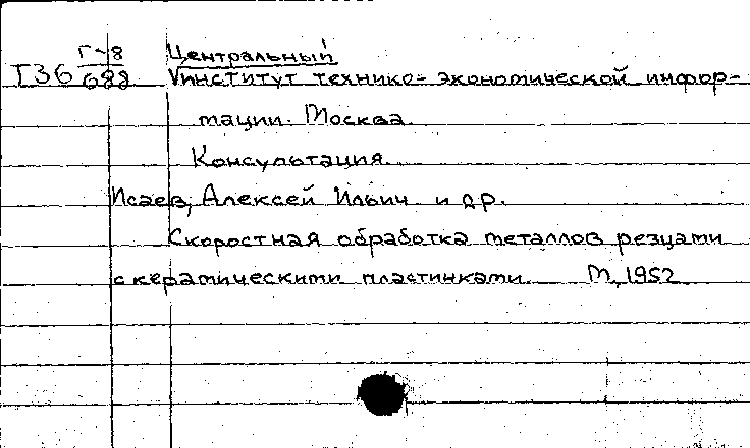 Г-8 Центральный
Т36 688 институт технико-экономической инфор-
мации. Москва.
Консультация.
Исаев, Алексей Ильич и др.
Скоростная обработка металлов резцами
с керамическими пластинками. М, 1952